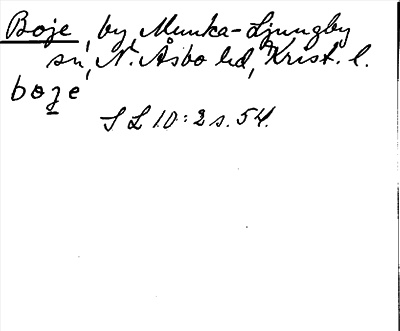 Boje, by Munka-Ljungby
sn, N. Åsbo hd, Krist. l.
boje
S L 10:2 s. 54.